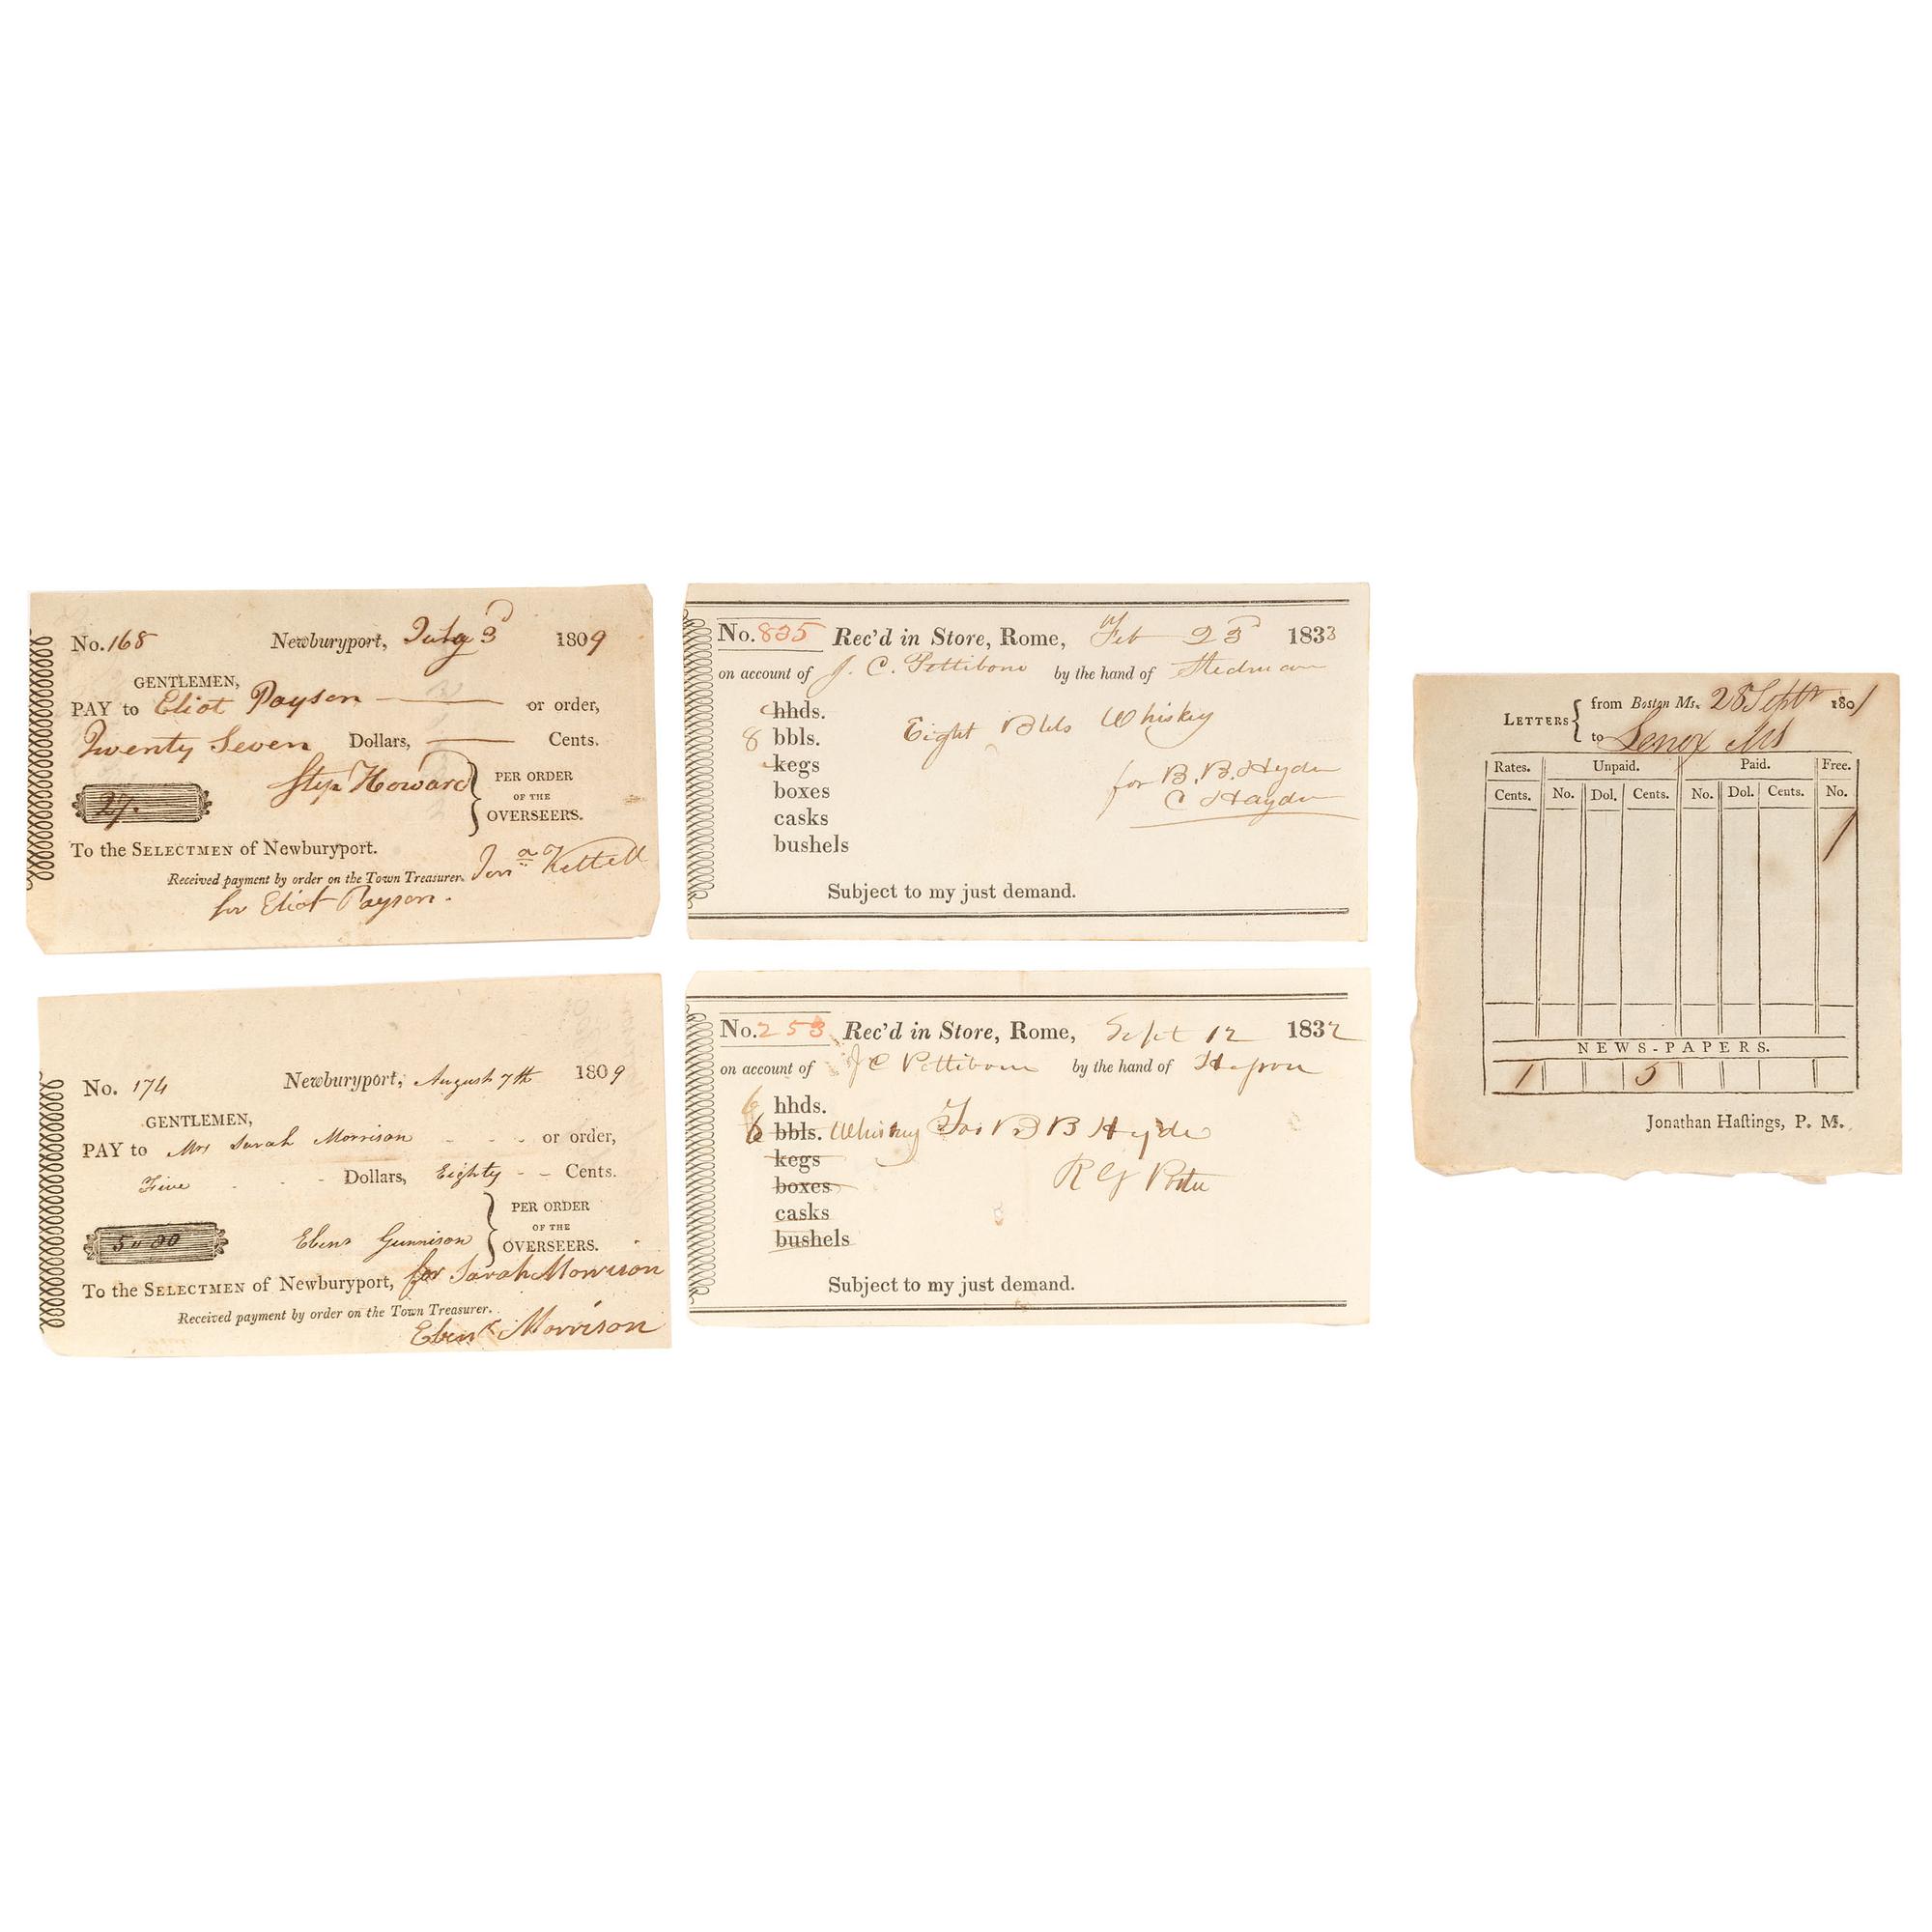 No. 168 Newburyport, July 3d 1809
GENTLEMEN,
PAY to Eliot Payson or order,
Twenty Seven Dollars, Cents.
27. Step Howard } PER ORDER
OF THE
OVERSEERS.
To the SELECTMEN of Newburyport.
Received payment by order on the Town Treasurer. Jona Kettell
for Eliot Payson.
No. 174 Newburyport, August 7th 1809
GENTLEMEN,
PAY to Mrs Sarah Morrison - - - or order,
Five - - - Dollars, Eighty - - Cents.
5 " 80 Ebenr Gunnison } PER ORDER
OF THE
OVERSEERS.
To the SELECTMEN of Newburyport, for Sarah Morrison
Received payment by order on the Town Treasurer.
Ebenr Morrison
No. 835 Rec'd in Store, Rome, Feb 23d 1833
on account of J. C. Pettibone by the hand of Stedman
hhds.
8 bbls. Eight Bbls Whiskey
kegs for B. B. Hyde
boxes C Hayden
casks
bushels
Subject to my just demand.
No. 253 Rec'd in Store, Rome, Sept 12 1832
on account of J C Pettibone by the hand of
6 hhds.
6 bbls. Whiskey For B B Hyde
kegs
boxes R G
casks
bushels
Subject to my just demand.
LETTERS { from Boston Ms. 28 Septr 1801
to Lenox Ms
Rates. Unpaid. Paid. Free.
Cents. No. Dol. Cents. No. Dol. Cents. No.
1
NEWS-PAPERS.
1 5
Jonathan Haſtings, P. M.